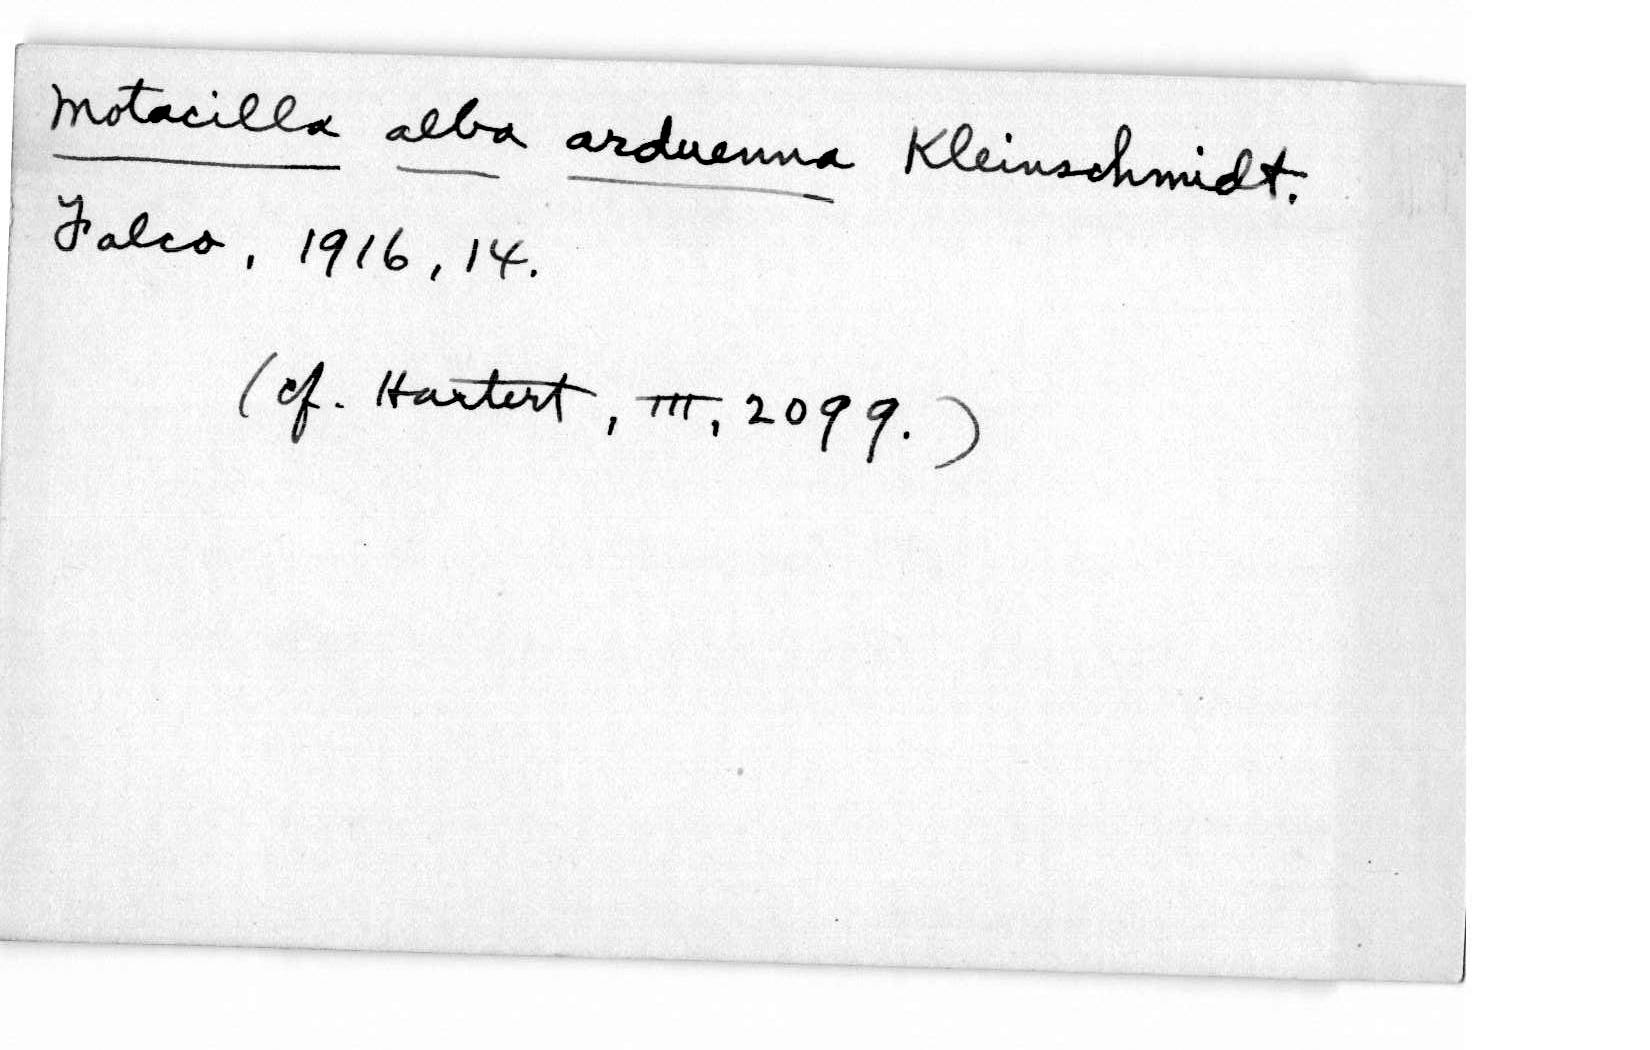 Motacilla alba arduenna Kleinschmidt.
Falco, 1916, 14.
(cf. Hartert, III, 2099.)